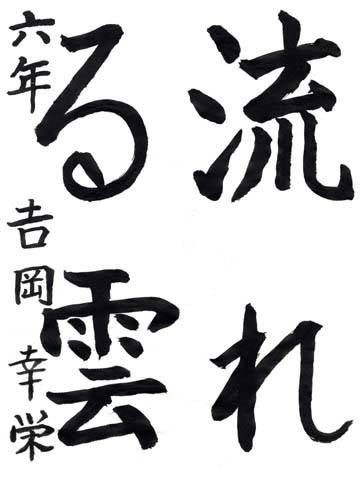 流れ
る雲
六年 吉岡幸栄